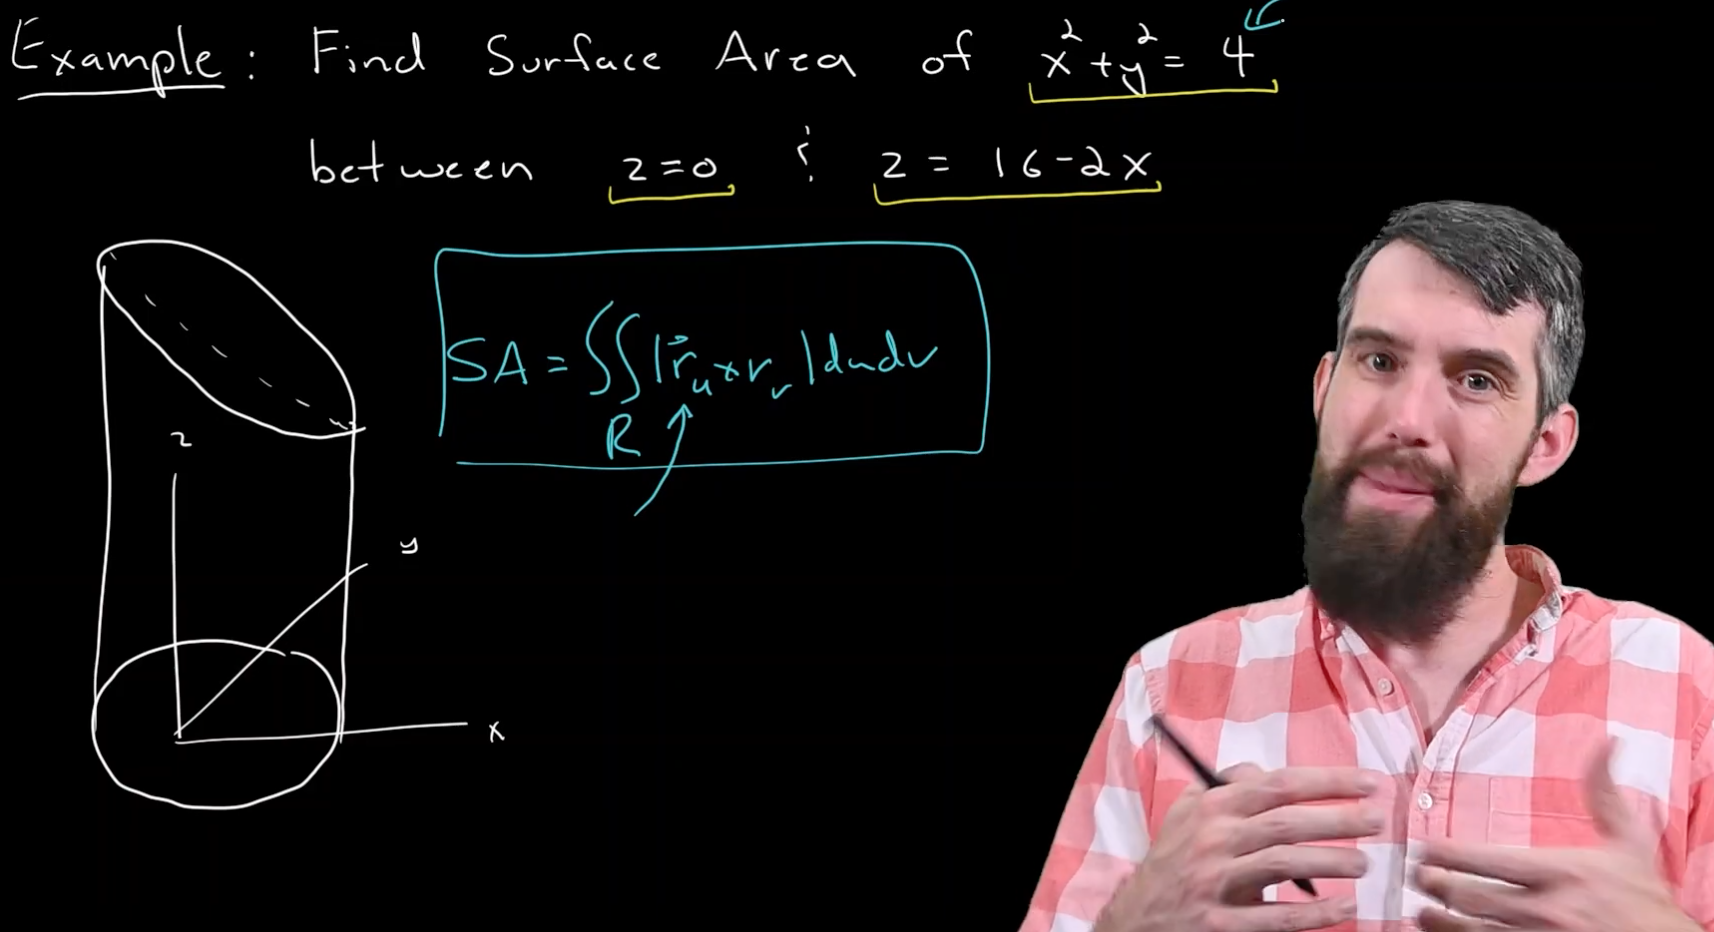 Example: Find Surface Area of x²+y²= 4
between z=0 & z = 16-2x
SA = ∬|r⃗ᵤ×rᵥ|dudv
R
z
y
x